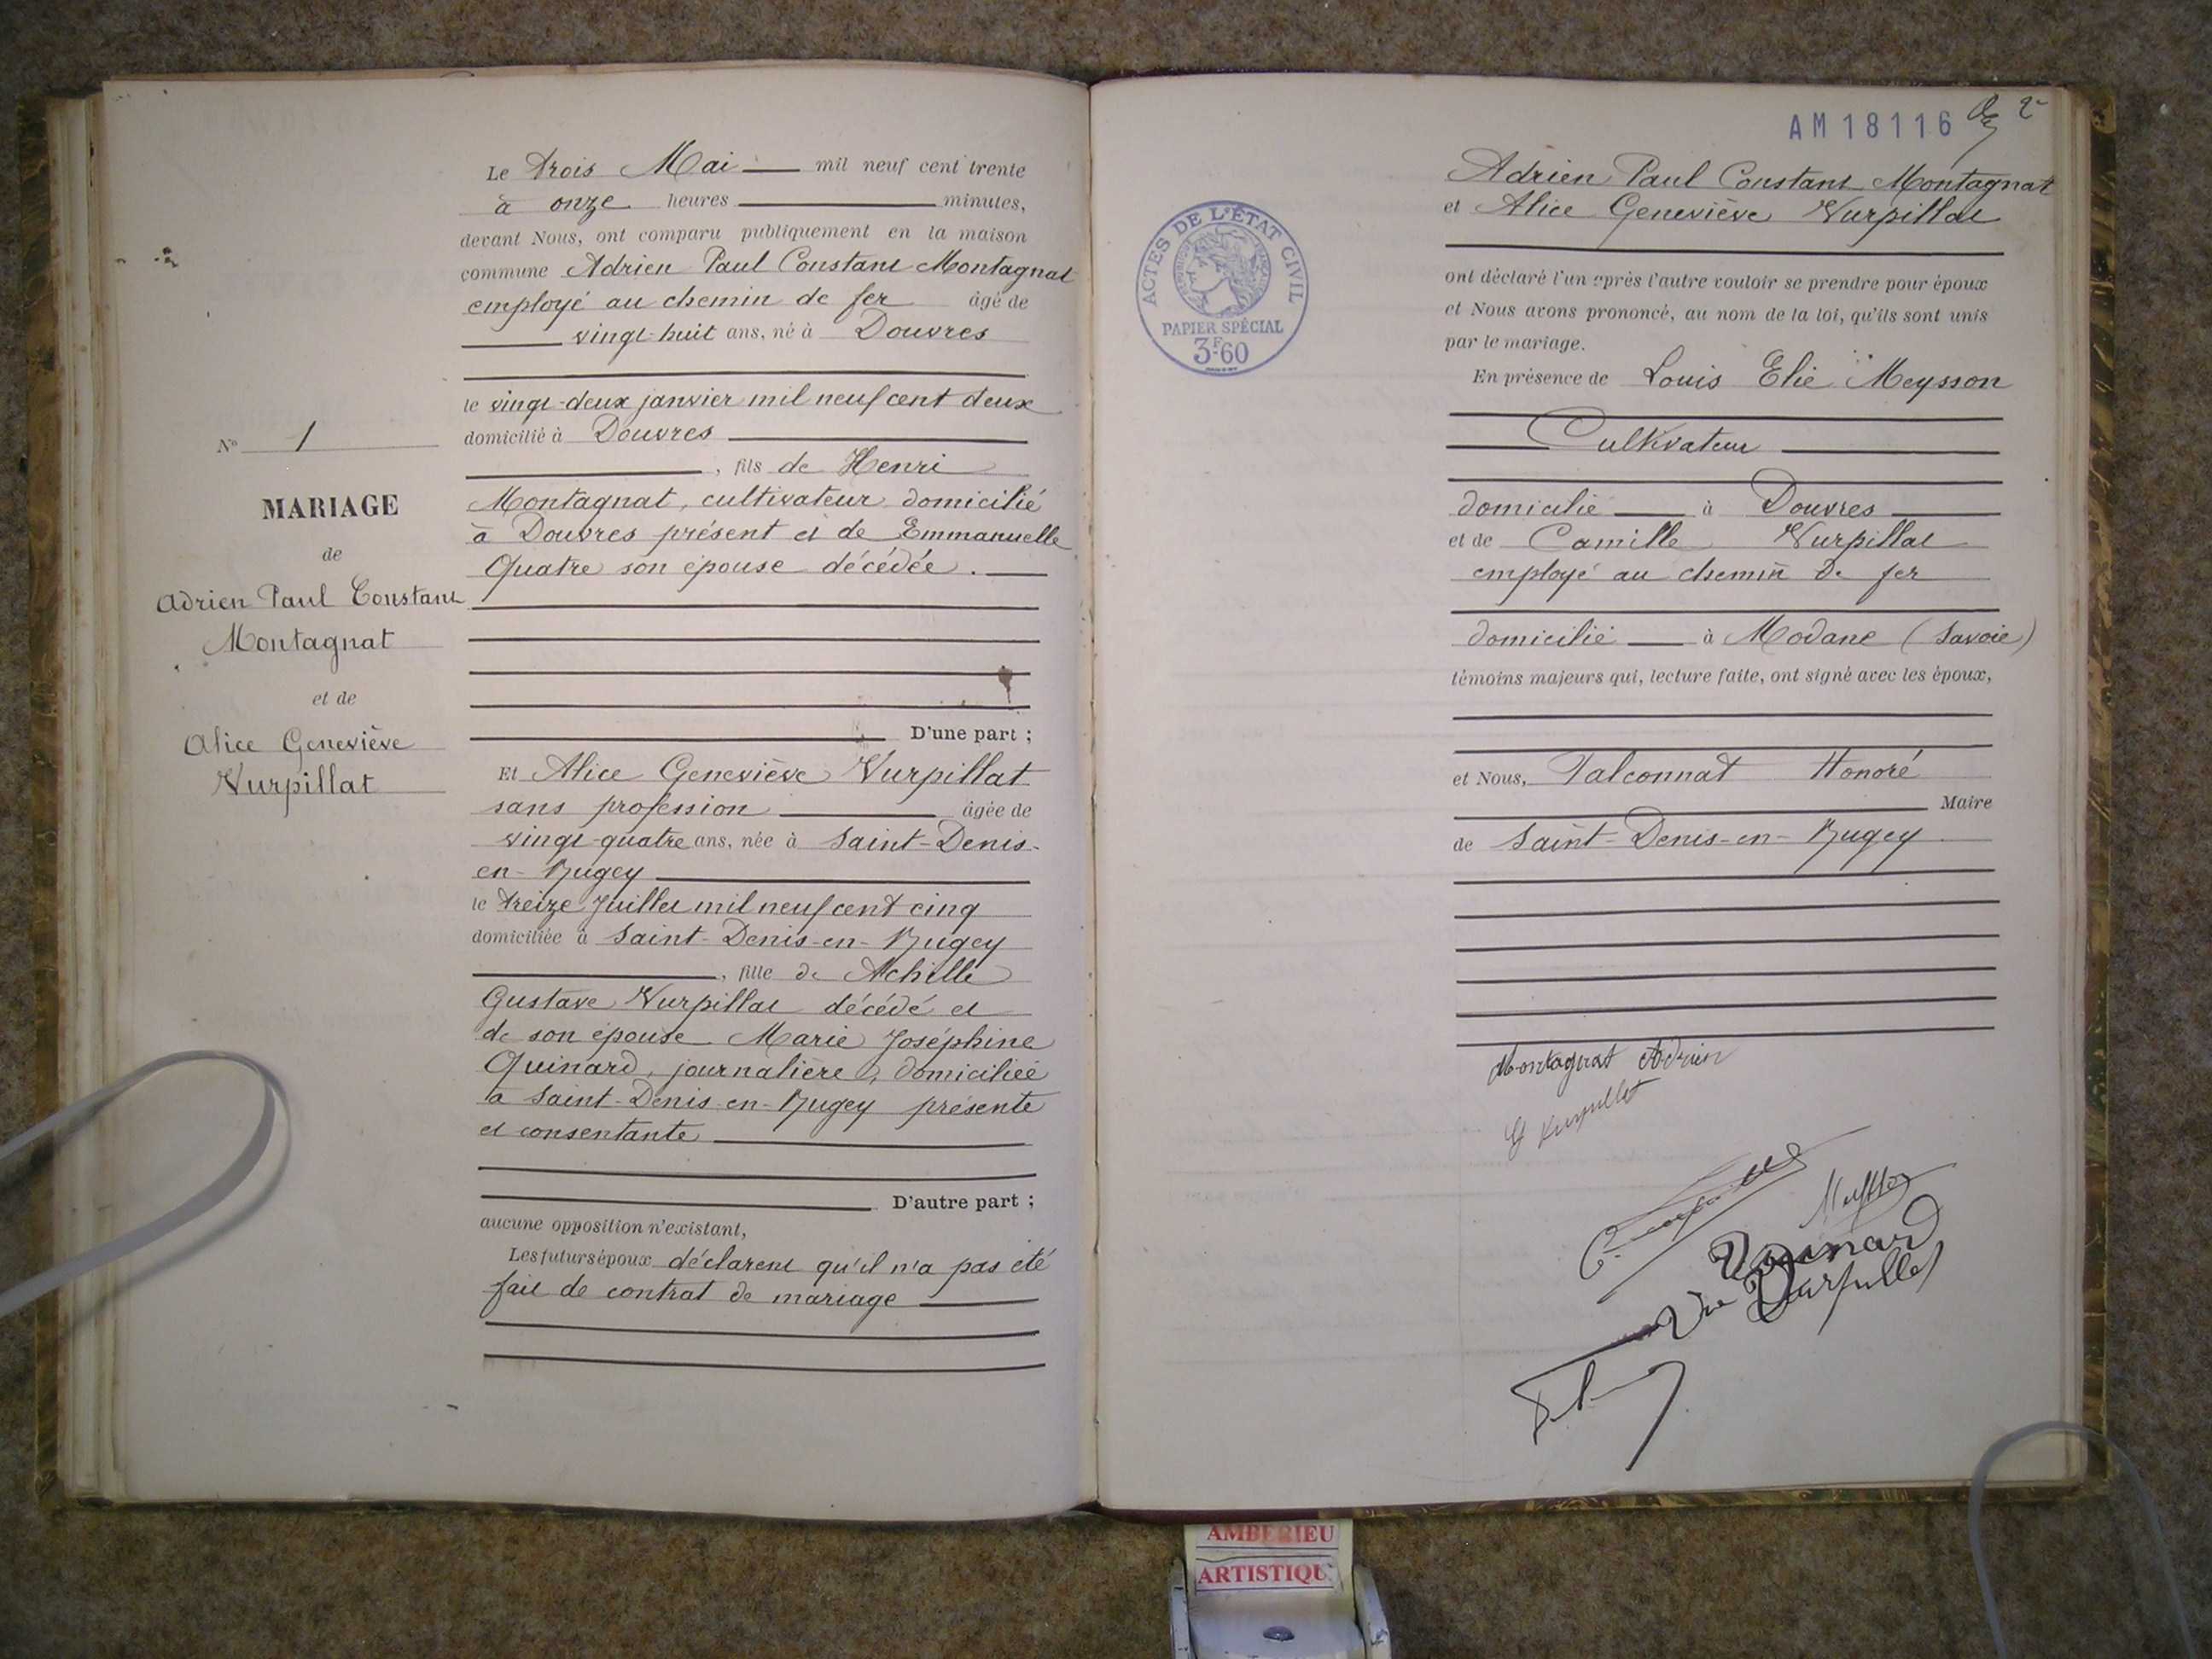 Le trois Mai mil neuf cent trente
à onze heures minutes,
devant Nous, ont comparu publiquement en la maison
commune Adrien Paul Constant Montagnat
employé au chemin de fer âgé de
vingt-huit ans, né à Douvres
le vingt-deux janvier mil neuf cent deux
domicilié à Douvres
, fils de Henri
Montagnat, cultivateur domicilié
à Douvres présent et de Emmanuelle
Quatre son épouse décédée.
D'une part ;
Et Alice Geneviève Vurpillat
sans profession âgée de
vingt-quatre ans, née à Saint-Denis-
en-Bugey
le treize Juillet mil neuf cent cinq
domiciliée à Saint-Denis-en-Bugey
, fille de Achille
Gustave Vurpillat décédé et
de son épouse Marie Joséphine
Quinard, journalière, domiciliée
à Saint-Denis-en-Bugey présente
et consentante
D'autre part ;
aucune opposition n'existant,
Les futurs époux déclarent qu'il n'a pas été
fait de contrat de mariage
N° 1
MARIAGE
de
Adrien Paul Constant
Montagnat
et de
Alice Geneviève
Vurpillat
AM 18116
ACTES DE L'ÉTAT CIVIL
PAPIER SPÉCIAL
3F60
Adrien Paul Constant Montagnat
et Alice Geneviève Vurpillat
ont déclaré l'un après l'autre vouloir se prendre pour époux
et Nous avons prononcé, au nom de la loi, qu'ils sont unis
par le mariage.
En présence de Louis Elie Meysson
Cultivateur
domicilié à Douvres
et de Camille Vurpillat
employé au chemin de fer
domicilié à Modane (Savoie)
témoins majeurs qui, lecture faite, ont signé avec les époux,
et Nous, Falconnat Honoré
Maire
de Saint-Denis-en-Bugey
Montagnat Adrien
Quinard
Vve Vurpillat
AMBERIEU
ARTISTIQU